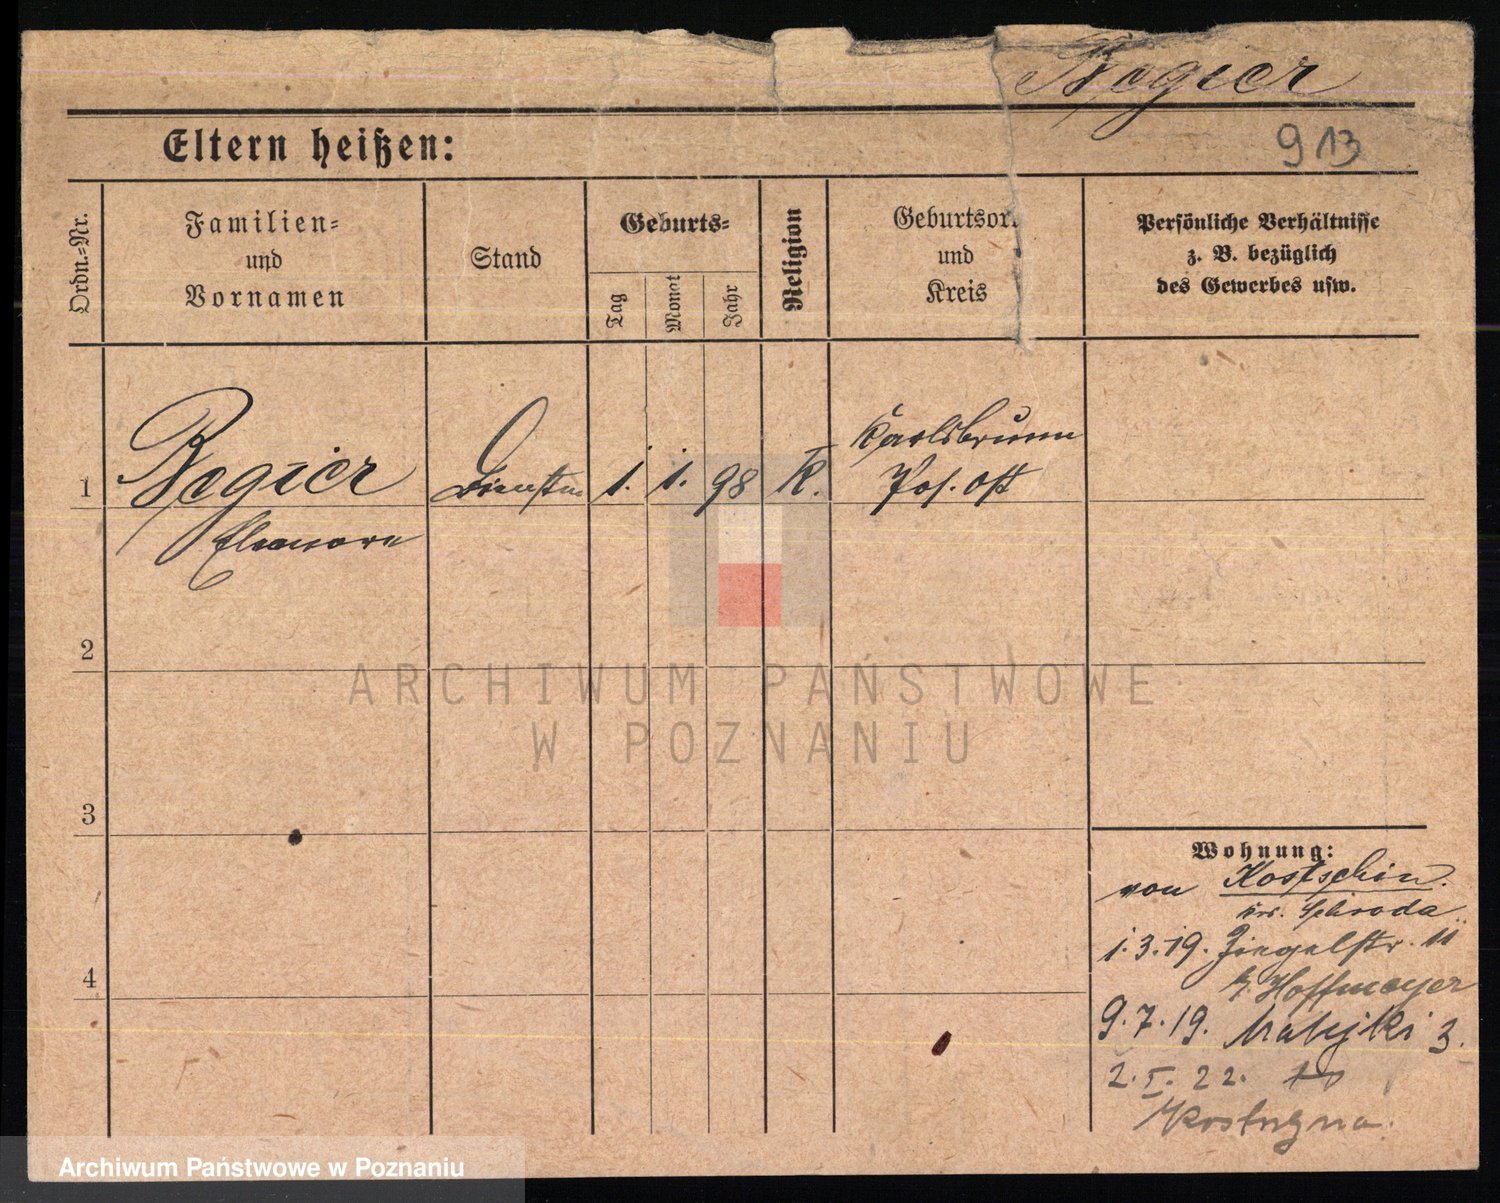 Regier
913
Eltern heißen:
Ordn.-Nr.
Familien-
und
Vornamen
Stand
Geburts-
Tag
Monat
Jahr
Religion
Geburtsor
und
Kreis
Persönliche Verhältnisse
z. B. bezüglich
des Gewerbes usw.
1
Regier
Eleonore
1. 1. 98
K.
Karlsbrunn
Pos. Ost
2
3
4
Wohnung:
von Kostschin.
Krs. Schroda
1.3.19. Ziegelstr. 11
b/ Hoffmeyer
9.7.19. Matejki 3.
2. I. 22.
Kostrzyna.
ARCHIWUM PAŃSTWOWE
W POZNANIU
Archiwum Państwowe w Poznaniu